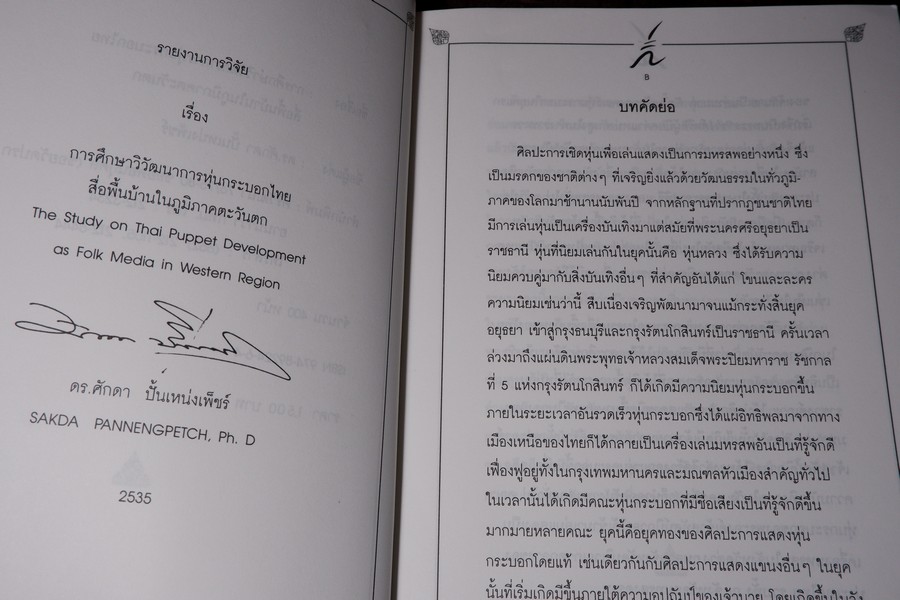 รายงานการวิจัย
เรื่อง
การศึกษาวิวัฒนาการหุ่นกระบอกไทย
สื่อพื้นบ้านในภูมิภาคตะวันตก
The Study on Thai Puppet Development
as Folk Media in Western Region
ดร.ศักดา ปั้นเหน่งเพ็ชร์
SAKDA PANNENGPETCH, Ph. D
2535
B
บทคัดย่อ
ศิลปะการเชิดหุ่นเพื่อเล่นแสดงเป็นการมหรสพอย่างหนึ่ง ซึ่ง
เป็นมรดกของชาติต่างๆ ที่เจริญยิ่งแล้วด้วยวัฒนธรรมในทั่วภูมิ-
ภาคของโลกมาช้านานนับพันปี จากหลักฐานที่ปรากฏชนชาติไทย
มีการเล่นหุ่นเป็นเครื่องบันเทิงมาแต่สมัยที่พระนครศรีอยุธยาเป็น
ราชธานี หุ่นที่นิยมเล่นกันในยุคนั้นคือ หุ่นหลวง ซึ่งได้รับความ
นิยมควบคู่มากับสิ่งบันเทิงอื่นๆ ที่สำคัญอันได้แก่ โขนและละคร
ความนิยมเช่นว่านี้ สืบเนื่องเจริญพัฒนามาจนแม้กระทั่งสิ้นยุค
อยุธยา เข้าสู่กรุงธนบุรีและกรุงรัตนโกสินทร์เป็นราชธานี ครั้นเวลา
ล่วงมาถึงแผ่นดินพระพุทธเจ้าหลวงสมเด็จพระปิยมหาราช รัชกาล
ที่ 5 แห่งกรุงรัตนโกสินทร์ ก็ได้เกิดมีความนิยมหุ่นกระบอกขึ้น
ภายในระยะเวลาอันรวดเร็วหุ่นกระบอกซึ่งได้แผ่อิทธิพลมาจากทาง
เมืองเหนือของไทยก็ได้กลายเป็นเครื่องเล่นมหรสพอันเป็นที่รู้จักดี
เฟื่องฟูอยู่ทั้งในกรุงเทพมหานครและมณฑลหัวเมืองสำคัญทั่วไป
ในเวลานั้นได้เกิดมีคณะหุ่นกระบอกที่มีชื่อเสียงเป็นที่รู้จักดีขึ้น
มากมายหลายคณะ ยุคนี้คือยุคทองของศิลปะการแสดงหุ่น
กระบอกโดยแท้ เช่นเดียวกันกับศิลปะการแสดงแขนงอื่นๆ ในยุค
นั้นที่เริ่มเกิดมีขึ้นภายใต้ความอุปถัมป์ของเจ้านาย โดยเกิดขึ้นในวัง